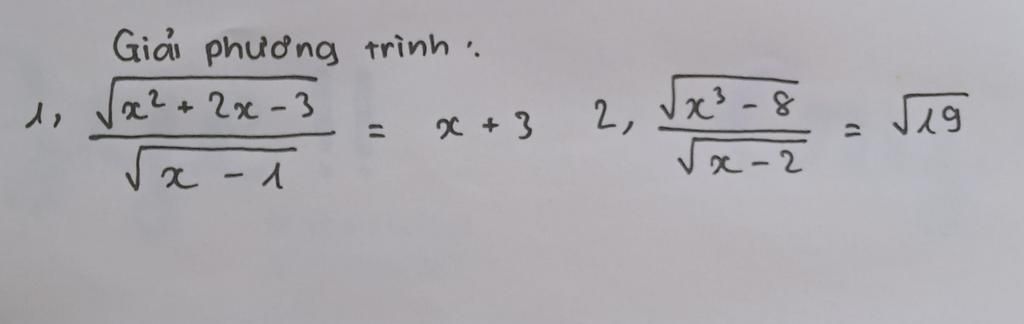 Giải phương trình :
1, \frac{\sqrt{x^2 + 2x - 3}}{\sqrt{x - 1}} = x + 3 2, \frac{\sqrt{x^3 - 8}}{\sqrt{x - 2}} = \sqrt{19}